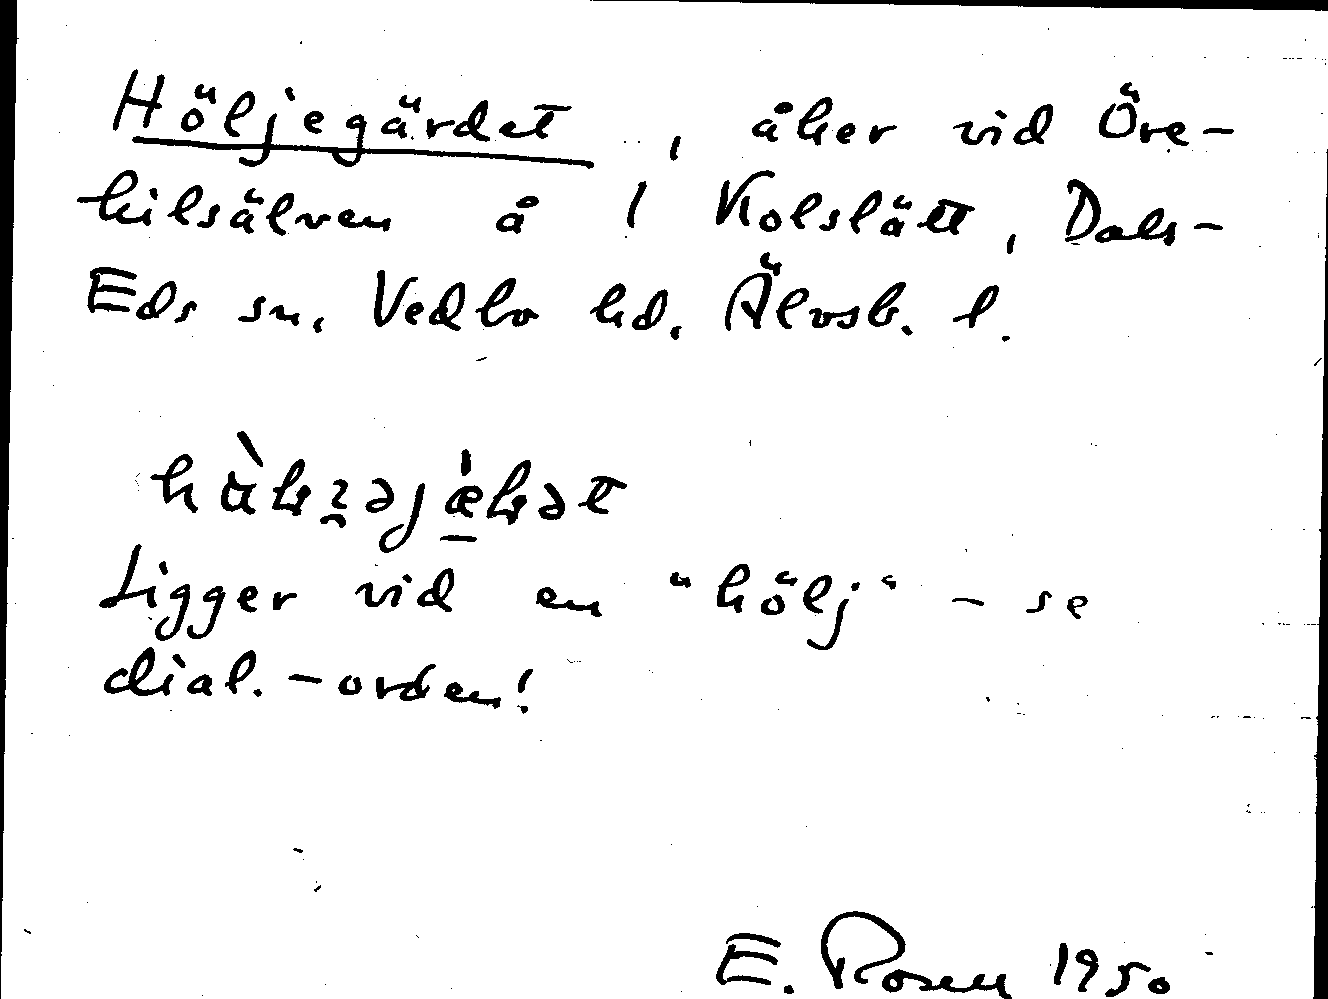 Höljegärdet, åker vid Öre-
kilsälven å 1 Kolslätt, Dals-
Eds sn, Vedbo hd. Älvsb. l.
Ligger vid en "hölj" - se
dial.-orden!
E. Rosen 1950